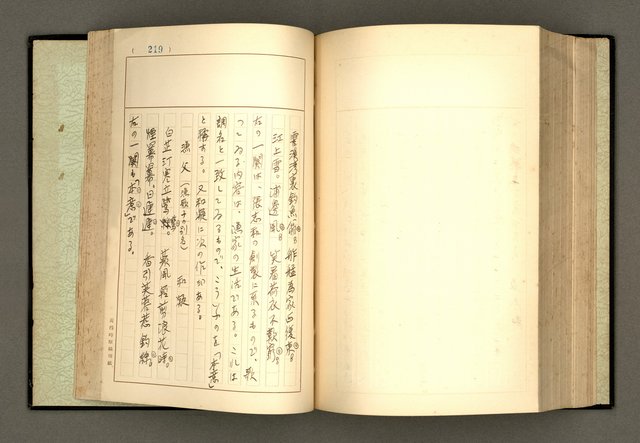 ( 219 )
霅溪湾裏釣魚翁。舴艋為家西復東。
江上雪。浦邊風。笑著荷衣不歎窮。
右の一闋は、張志和の創製に係るもので、歌
つてゐる内容は、漁家の生活である。これは
調名と一致してゐるもので、こういふのを「本意」
と稱する。又和凝に次の作がある。
漁父 和凝
白芷汀寒立鷺鷥。蘋風輕剪浪花時。
煙冪冪、日遲遲。香引芙蓉惹釣絲。
右の一闋も「本意」である。